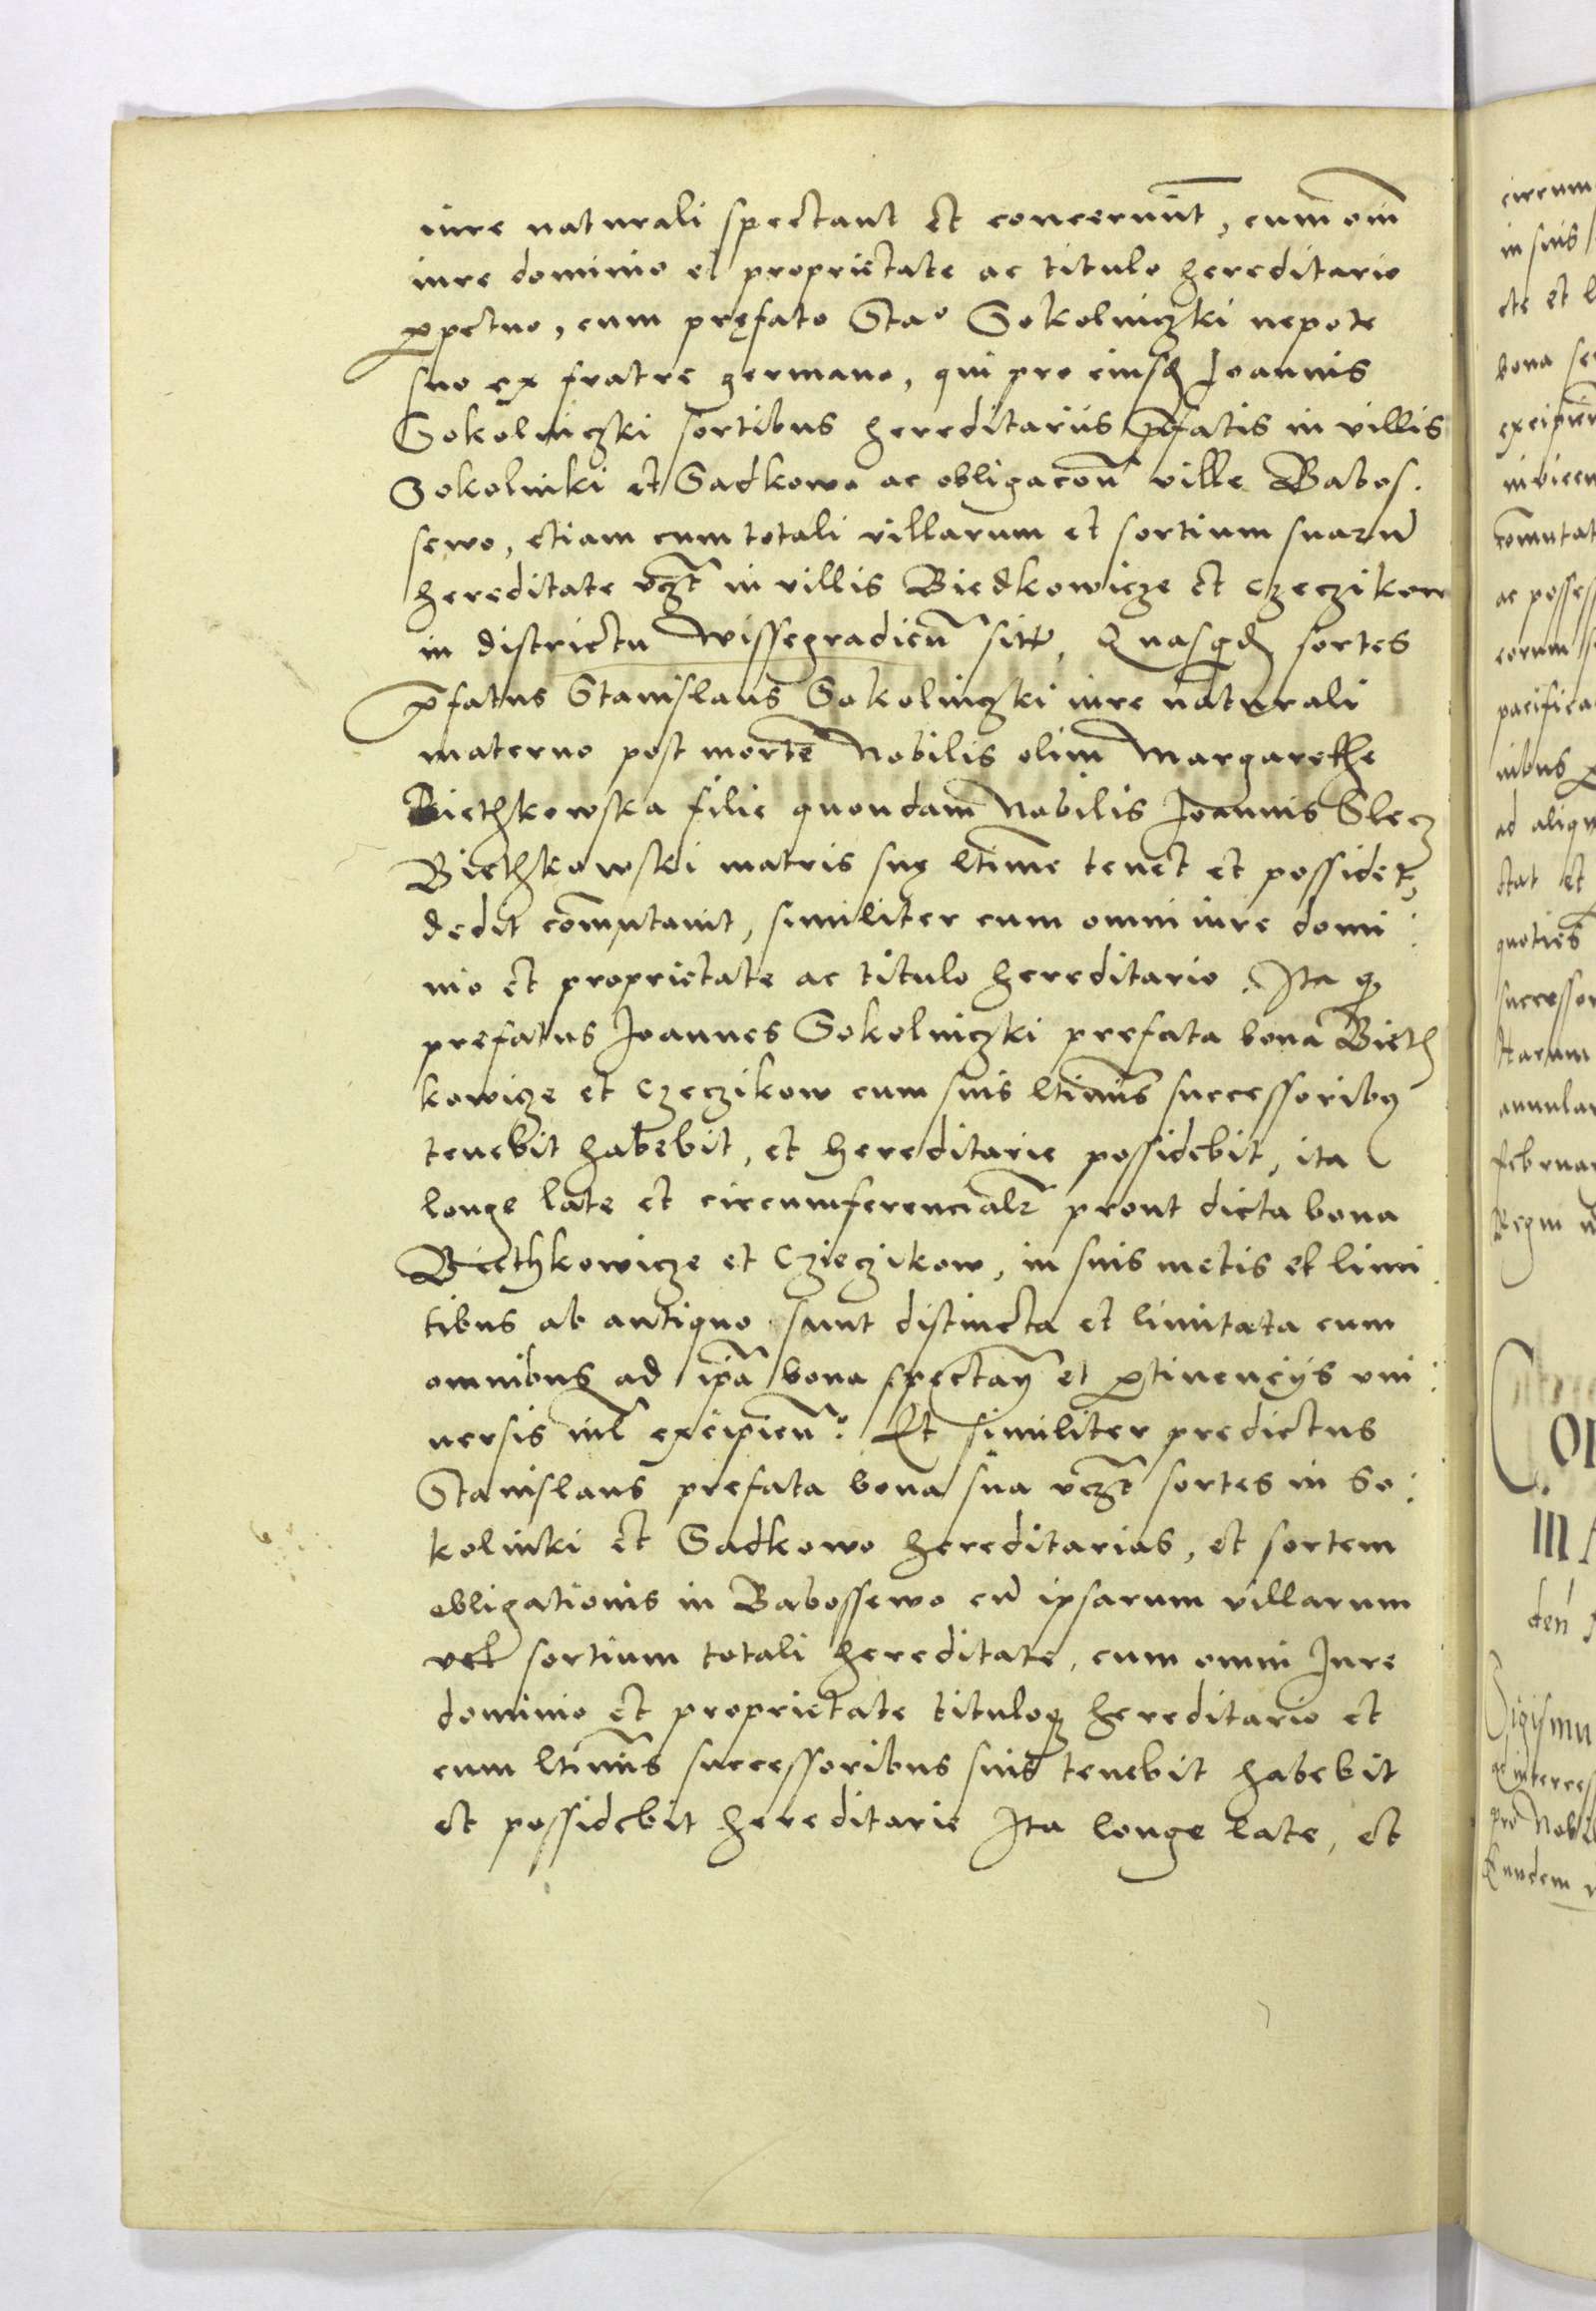 iure naturali spectant et concernunt, cum om̄i
iure dominio et proprietate ac titulo hereditario
ꝑpetuo, cum pręfato Stao Sokolniczki nepote
suo ex fratre germano, qui pro eiusd Joannis
Sokolniczki sortibus hereditariis p̄fatis in villis
Sokolniki et Sadkowo ac obligacoñ ville Babos.
sewo, etiam cum totali villarum et sortium suarū
hereditate vczt in villis Biedkowicze et Czeczikow
in districtu Wissegradień sitis, Quasqd sortes
p̄fatus Stanislaus Sokolniczki iure naturali
materno post mortē Nobilis olim Margarethe
Biethkowska filie quondam Nobilis Joannis Slecz
Biethkowski matris suę ltime tenet et possidet,
dedit com̄utauit, similiter cum omni iure domi:
nio et proprietate ac titulo hereditario. Ita ꝙ
prefatus Joannes Sokolniczki prefata bona Bieth
kowicze et Czeczikow cum suis ltimis successoribꝯ
tenebit habebit, et hereditarie possidebit, ita
longe late et circumferencialr prout dicta bona
Biethkowicze et Czieczikow, in suis metis et limi:
tibus ab antiquo sunt distincta et limitata cum
omnibus ad ip̄a bona spectań et ꝑtinencijs vni:
uersis nil excipień. Et similiter predictus
Stanislaus prefata bona sua vczt sortes in So:
kolniki et Sadkowo hereditarias, et sortem
obligationis in Babossewo cū ipsarum villarum
vel sortium totali hereditate, cum omni Jure
dominio et proprietate tituloqꝫ hereditario et
cum ltimis successoribus suis tenebit habebit
et possidebit hereditarie Ita longe late, et
circum
in suis
cte et l
bona se
excipień
inuicem
com̄utat
ac possess
eorum
pacifica
nibus
ad aliqu
stat et
quoties
successor
ttarum
annular
februar
Regni
III
den
Sigismu
pro Nobil
Eundem